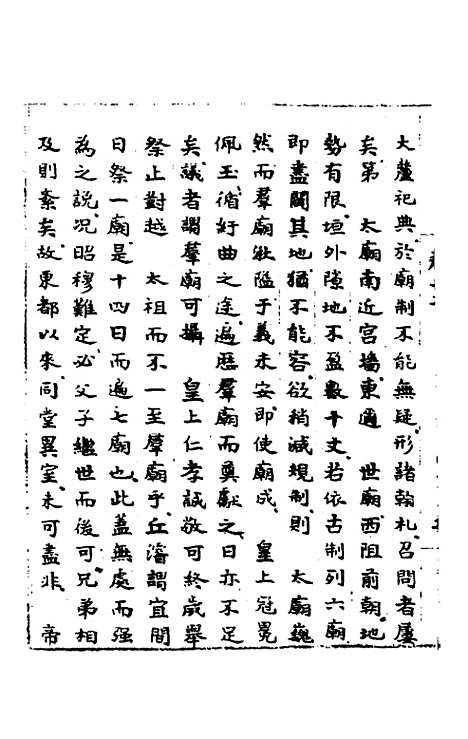 大釐祀典於廟制不能無疑形諸翰札召問者屢
矣第　太廟南近宮墻東邇　世廟西阻前朝地
勢有限垣外隙地不盈數十丈若依古制列六廟
即盡闢其地猶不能容欲稍減規制則　太廟巍
然而羣廟湫隘于義未安即使廟成　皇上冠冕
佩玉循紆曲之途遍歷羣廟而奠獻之日亦不足
矣議者謂羣廟可攝　皇上仁孝誠敬可終歲舉
祭止對越　太祖而不一至羣廟乎丘濬謂宜間
日祭一廟是十四日而遍七廟也此蓋無處而强
為之說况昭穆難定必父子繼世而後可兄弟相
及則紊矣故東都以來同堂異室未可盡非　帝